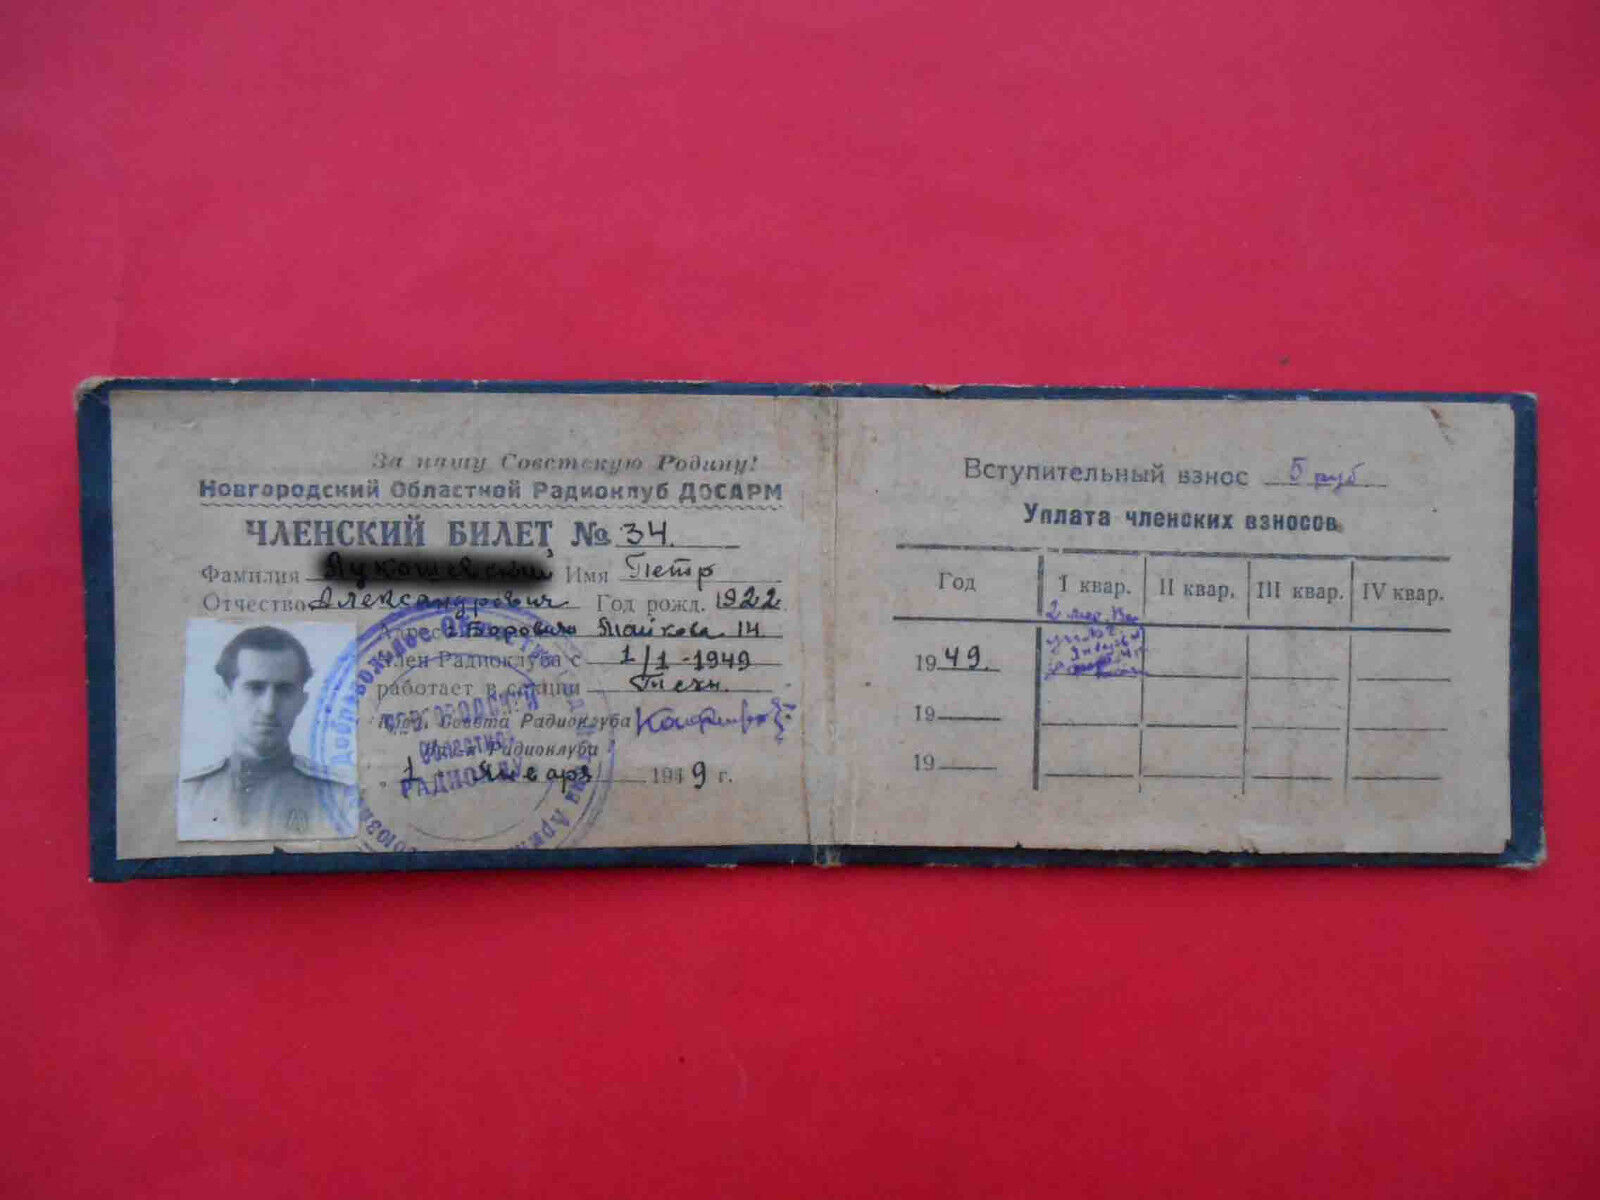 За нашу Советскую Родину!
Новгородский Областной Радиоклуб ДОСАРМ
ЧЛЕНСКИЙ БИЛЕТ № 34.
Фамилия Имя Петр
Отчество Александрович Год рожд. 1922
Адрес г. Боровичи Майкова 14
Член Радиоклуба с 1/1 - 1949
работает в секции Техн.
Пред. Совета Радиоклуба
Нач-к Радиоклуба
" 1 " Января 1949 г.
Вступительный взнос 5 руб
Уплата членских взносов
Год I квар. II квар. III квар. IV квар.
1949.
19
19